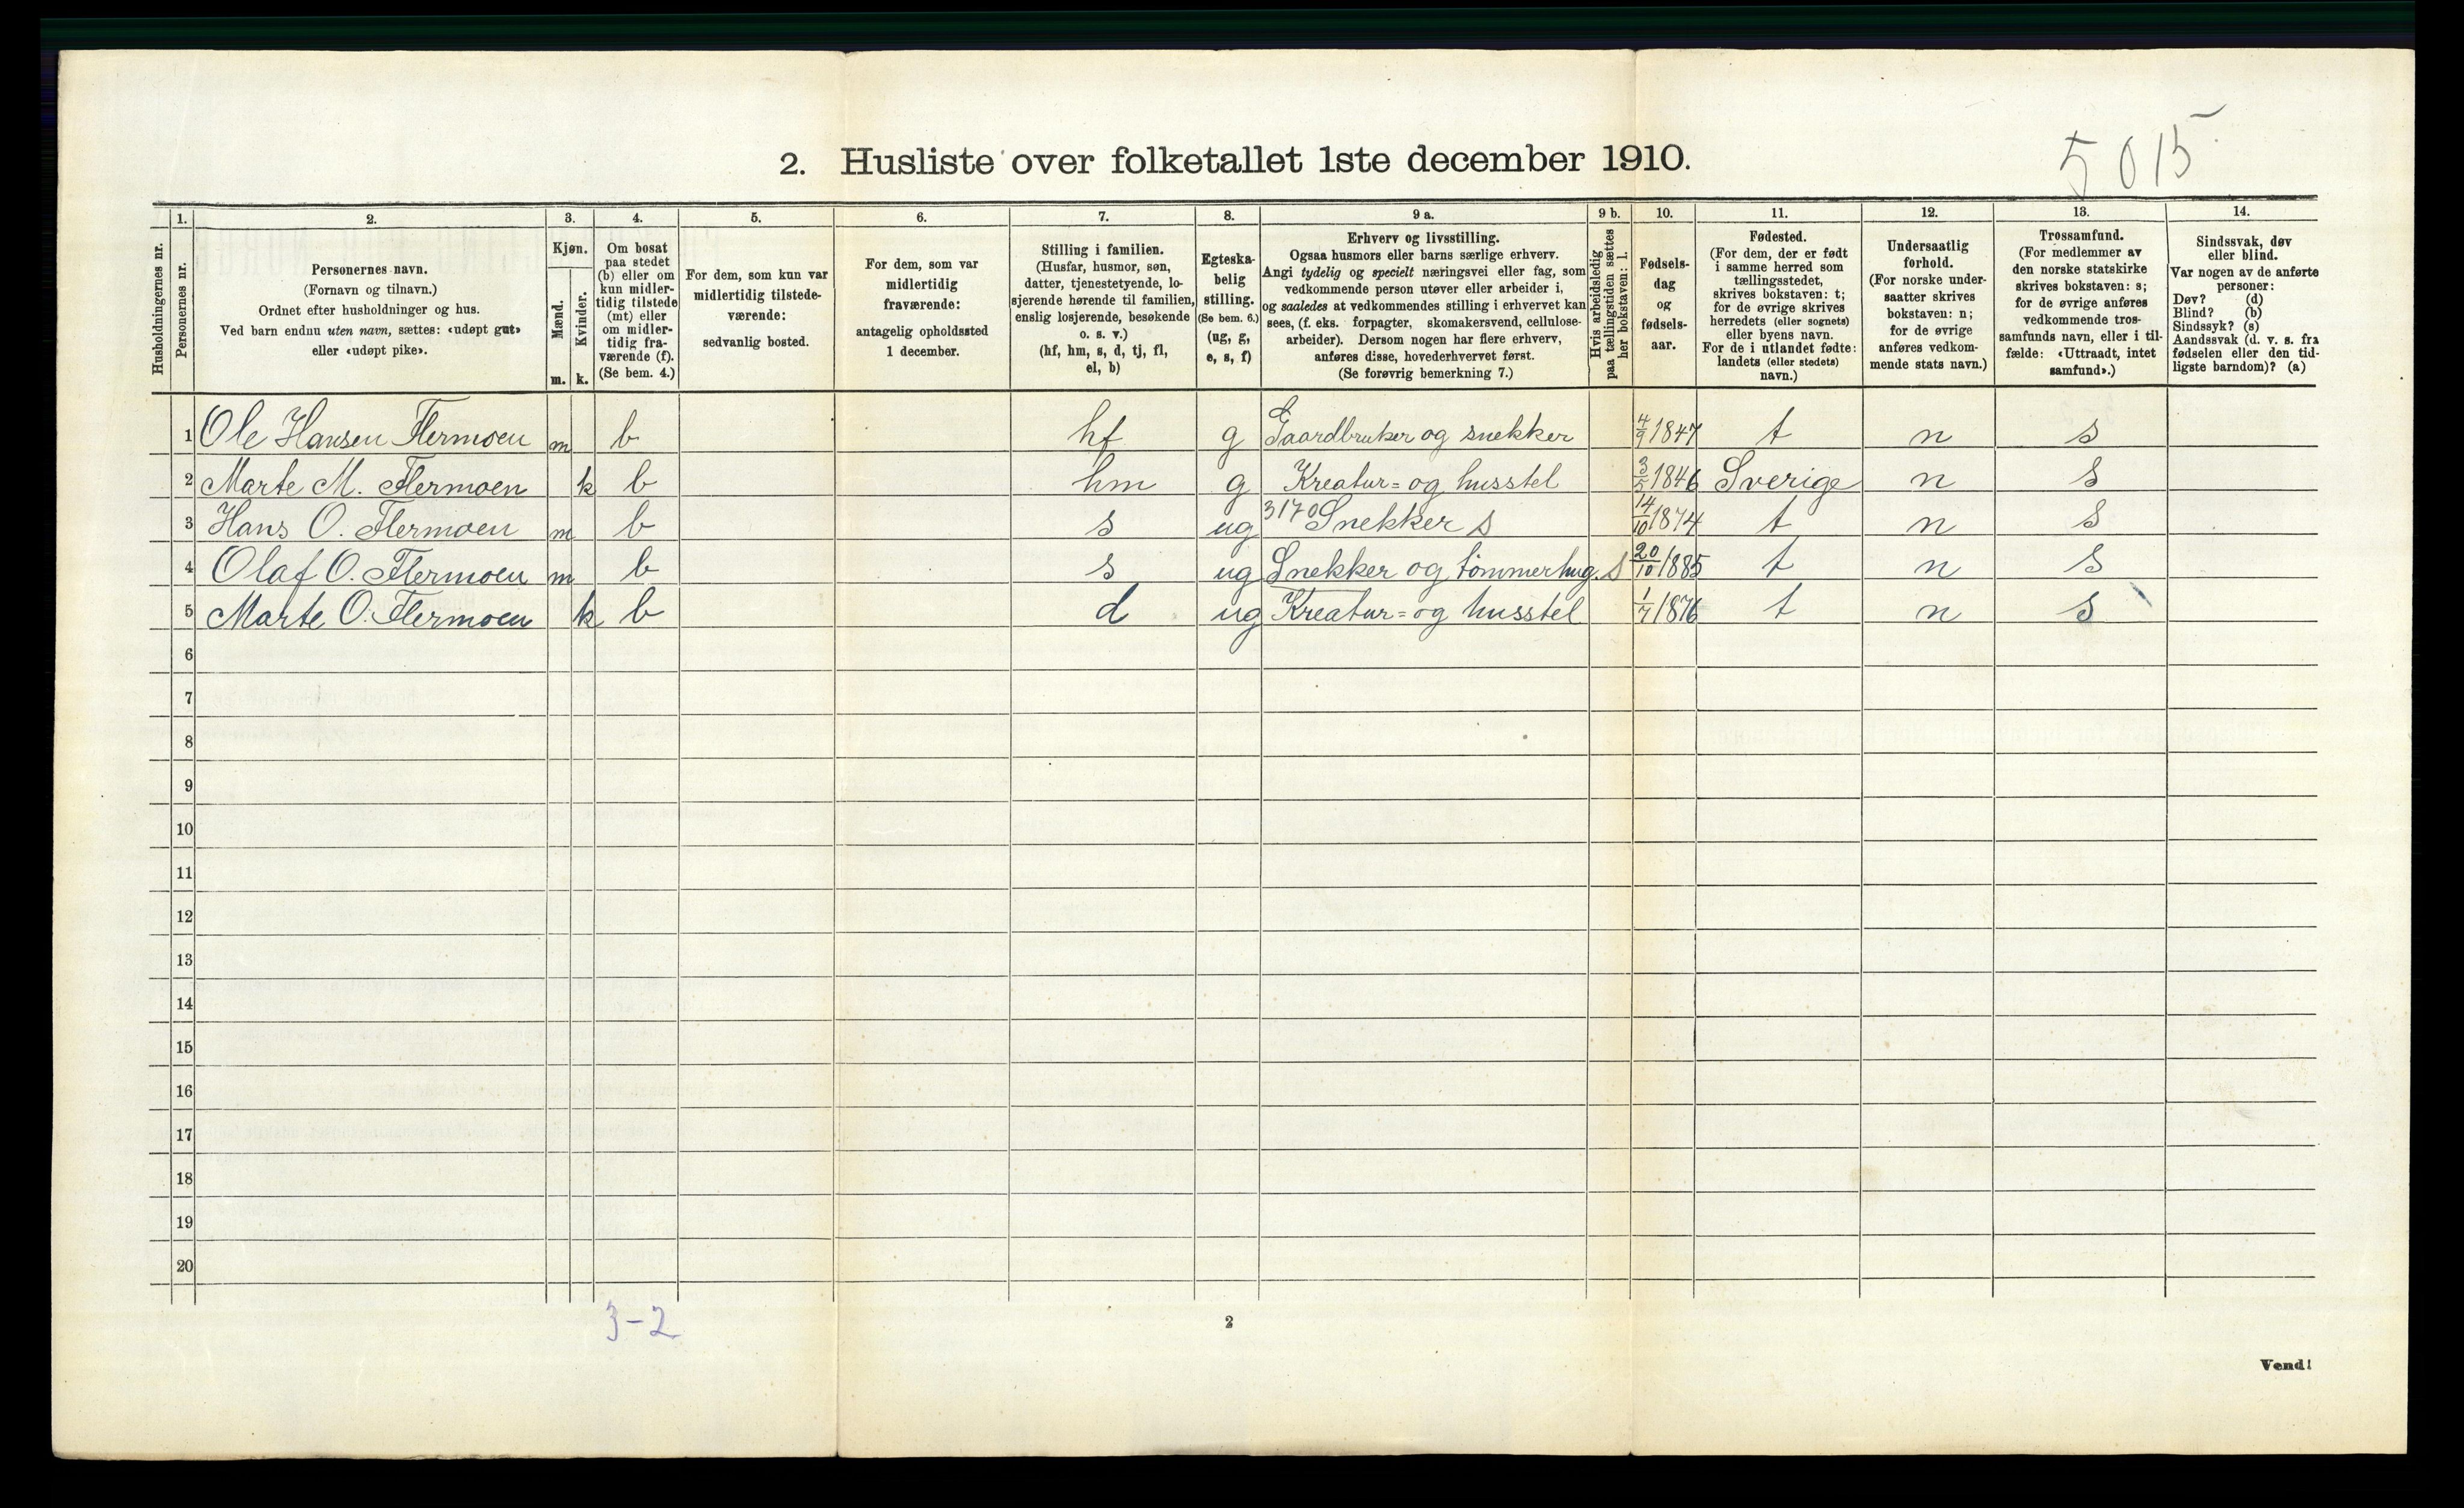 5015
2. Husliste over folketallet 1ste december 1910.
Husholdningernes nr.
1. Personernes nr.
2. Personernes navn.
(Fornavn og tilnavn.)
Ordnet efter husholdninger og hus.
Ved barn endnu uten navn, sættes: «udøpt gut»
eller «udøpt pike».
3. Kjøn.
Mænd. m.
Kvinder. k.
4. Om bosat
paa stedet
(b) eller om
kun midler-
tidig tilstede
(mt) eller
om midler-
tidig fra-
værende (f).
(Se bem. 4.)
5. For dem, som kun var
midlertidig tilstede-
værende:
sedvanlig bosted.
6. For dem, som var
midlertidig
fraværende:
antagelig opholdssted
1 december.
7. Stilling i familien.
(Husfar, husmor, søn,
datter, tjenestetyende, lo-
sjerende hørende til familien,
enslig losjerende, besøkende
o. s. v.)
(hf, hm, s, d, tj, fl,
el, b)
8. Egteska-
belig
stilling.
(Se bem. 6.)
(ug, g,
e, s, f)
9 a. Erhverv og livsstilling.
Ogsaa husmors eller barns særlige erhverv.
Angi tydelig og specielt næringsvei eller fag, som
vedkommende person utøver eller arbeider i,
og saaledes at vedkommendes stilling i erhvervet kan
sees, (f. eks. forpagter, skomakersvend, cellulose-
arbeider). Dersom nogen har flere erhverv,
anføres disse, hovederhvervet først.
(Se forøvrig bemerkning 7.)
9 b. Hvis arbeidsledig
paa tællingstiden sættes
her bokstaven: l.
10. Fødsels-
dag
og
fødsels-
aar.
11. Fødested.
(For dem, der er født
i samme herred som
tællingsstedet,
skrives bokstaven: t;
for de øvrige skrives
herredets (eller sognets)
eller byens navn.
For de i utlandet fødte:
landets (eller stedets)
navn.)
12. Undersaatlig
forhold.
(For norske under-
saatter skrives
bokstaven: n;
for de øvrige
anføres vedkom-
mende stats navn.)
13. Trossamfund.
(For medlemmer av
den norske statskirke
skrives bokstaven: s;
for de øvrige anføres
vedkommende tros-
samfunds navn, eller i til-
fælde: «Uttraadt, intet
samfund».)
14. Sindssvak, døv
eller blind.
Var nogen av de anførte
personer:
Døv? (d)
Blind? (b)
Sindssyk? (s)
Aandssvak (d. v. s. fra
fødselen eller den tid-
ligste barndom)? (a)
1 Ole Hansen Flermoen m b hf g Gaardbruker og snekker 4/9 1847 t n s
2 Marte M. Flermoen k b hm g Kreatur= og husstel 3/5 1846 Sverige n s
3 Hans O. Flermoen m b s ug 3170 Snekker s 14/10 1874 t n s
4 Olaf O. Flermoen m b s ug Snekker og tømmerhug. s 20/10 1885 t n s
5 Marte O. Flermoen k b d ug Kreatur= og husstel 1/7 1876 t n s
6
7
8
9
10
11
12
13
14
15
16
17
18
19
20
3-2
2
Vend!